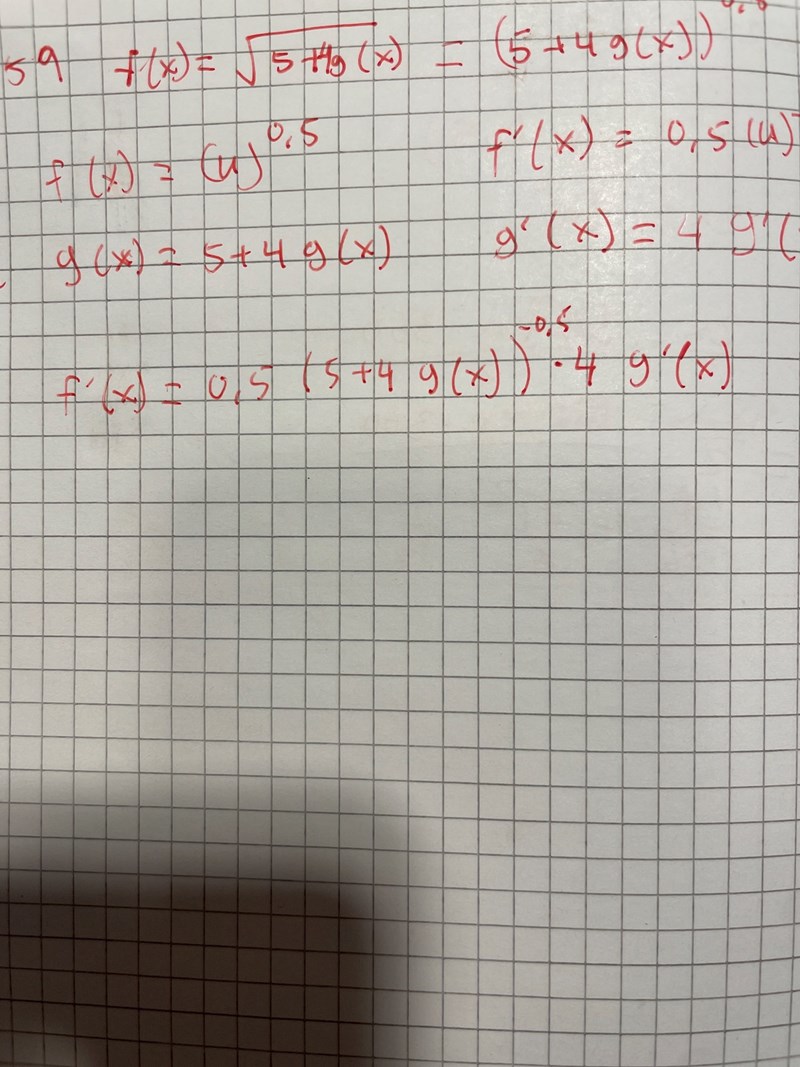 59 f(x) = √5+4g(x) = (5+4g(x))
f(x) = (u)^0,5 f'(x) = 0,5 (u)
g(x) = 5+4 g(x) g'(x) = 4 g'(
f'(x) = 0,5 (5+4 g(x))^-0,5 · 4 g'(x)